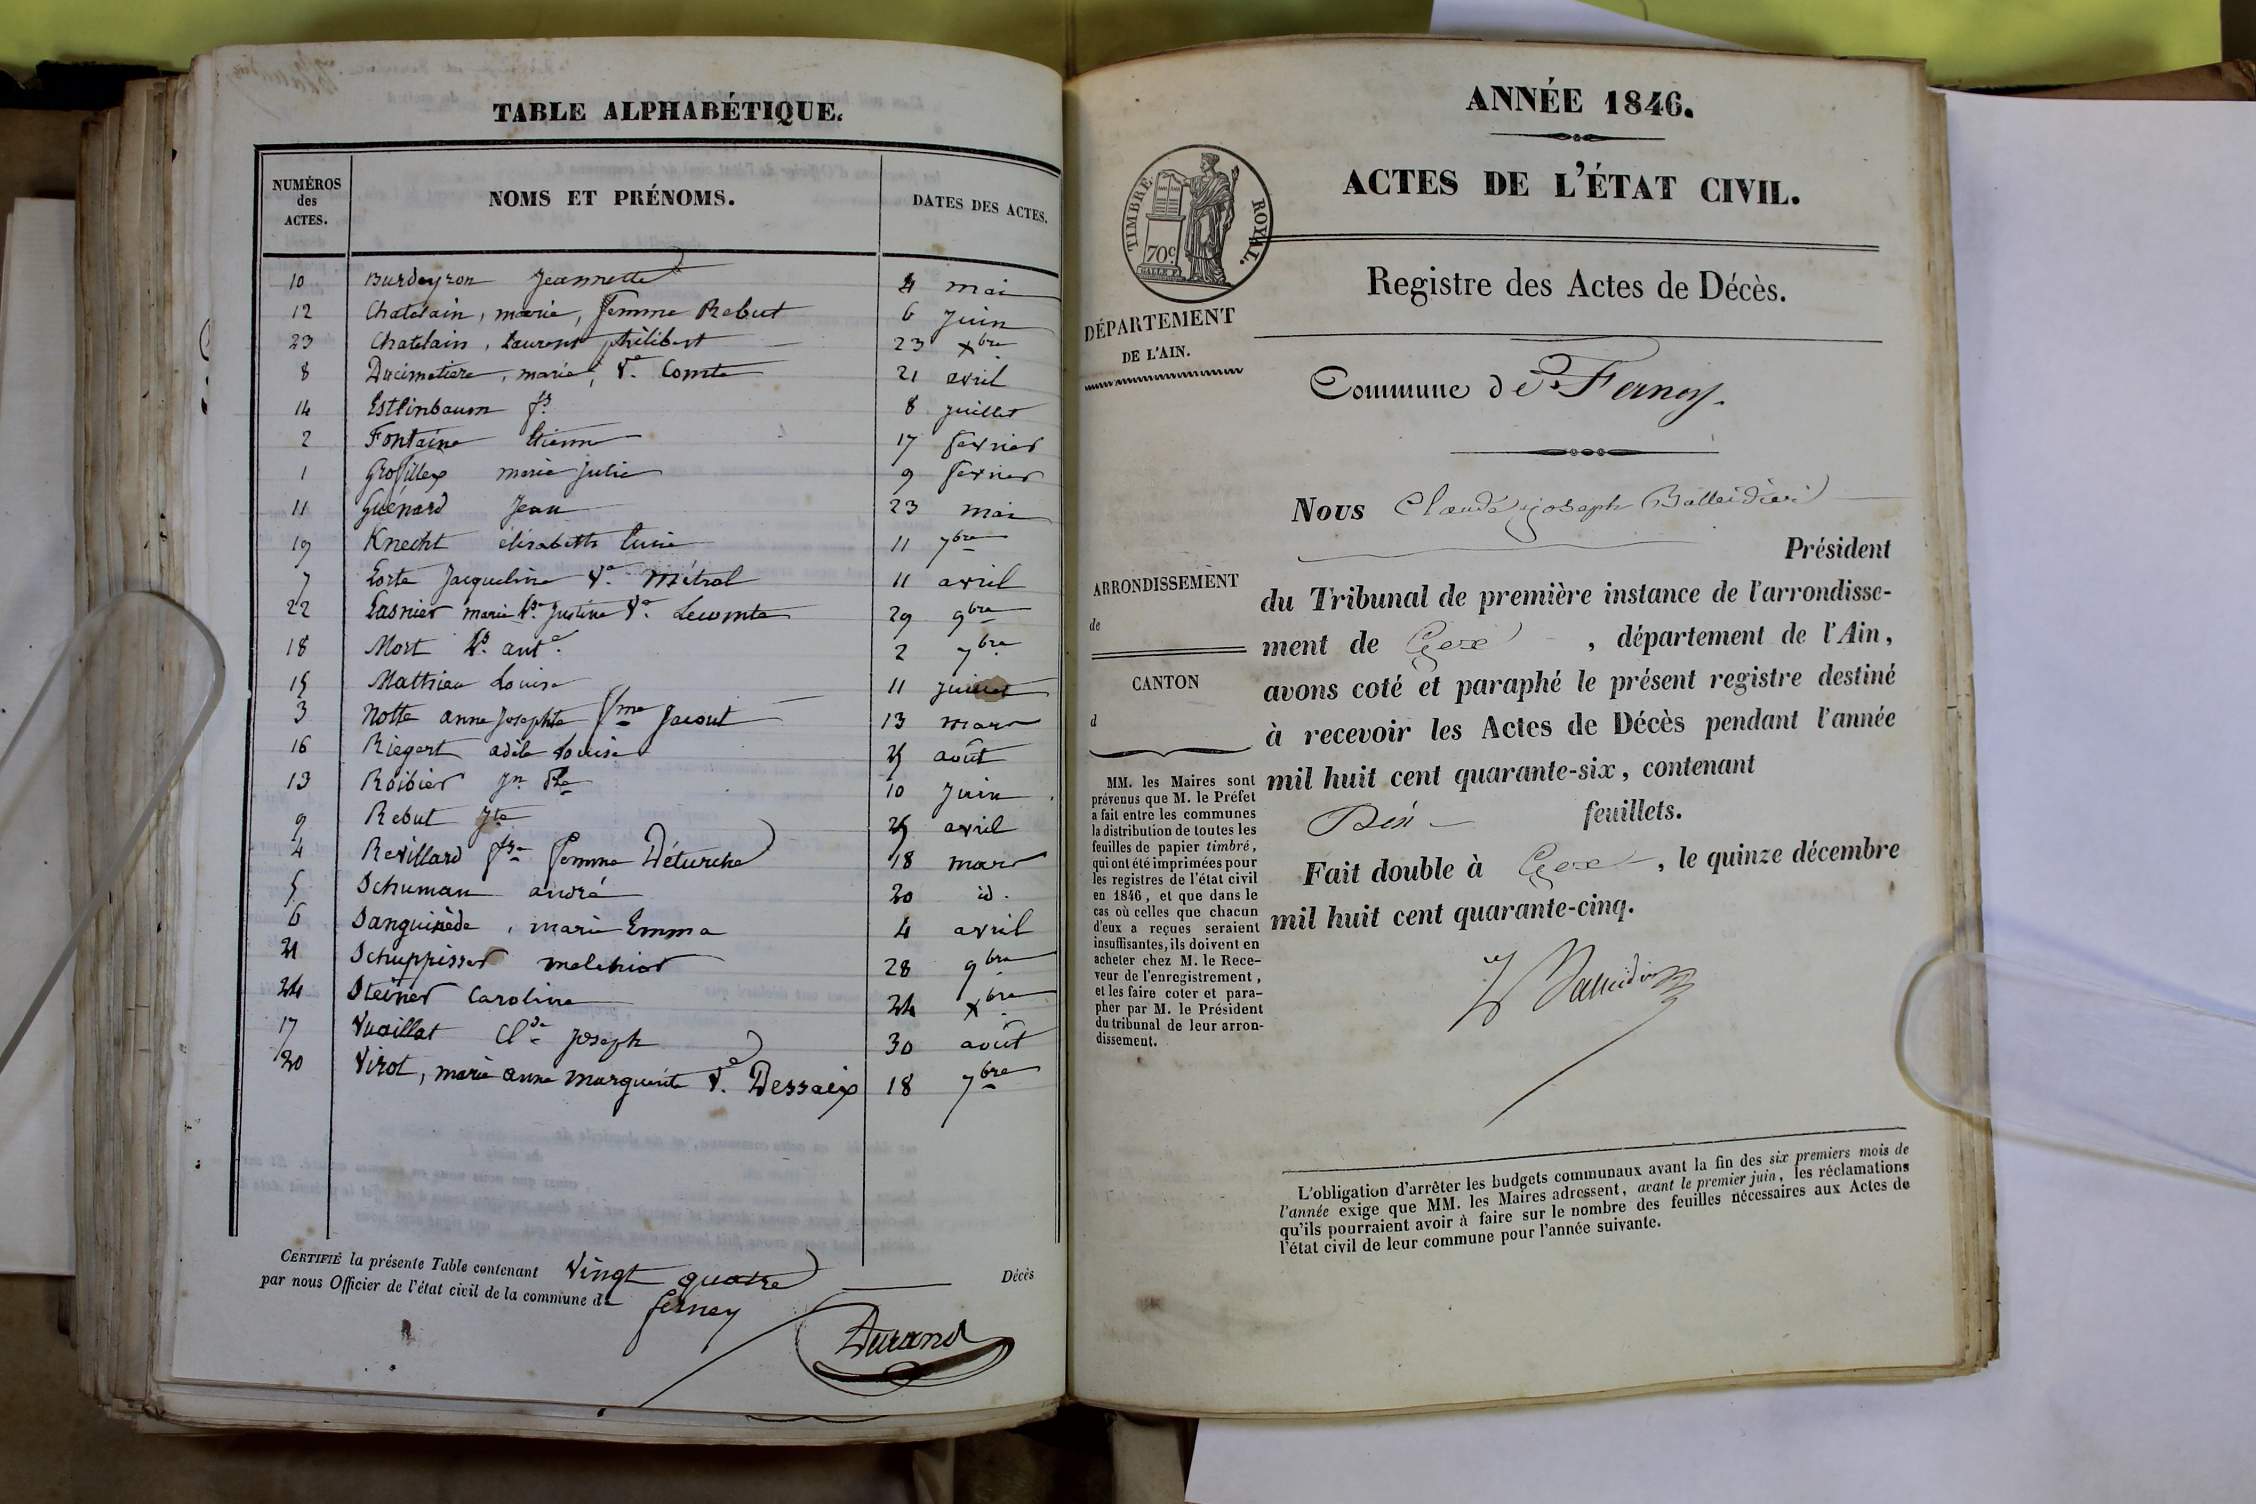 TABLE ALPHABÉTIQUE.
NUMÉROS des ACTES. NOMS ET PRÉNOMS. DATES DES ACTES.
10 Burdeyron Jeannette 4 mai
12 Chatelain, marie, femme Rebut 6 Juin
23 Chatelain, Laurent philibert 23 Xbre
8 Ducimetiere, marie, Ve. Comte 21 avril
14 Estlinbaum fs 8 Juillet
2 Fontaine Etienne 17 fevrier
1 Grofillex marie Julie 9 fevrier
11 Guénard Jean 23 mai
19 Knecht élisabeth Lucie 11 7bre
7 Lorte Jacqueline Ve. Métral 11 avril
22 Lasnier marie Justine Ve. Lecomte 29 9bre
18 Mort ant. 2 7bre
15 Mathieu Louise 11 Juillet
3 Notte anne Josephte fme Jacout 13 mars
16 Riegert adèle Louise 25 août
13 Roibier Jn 10 Juin
9 Rebut Jte 25 avril
4 Revillard fse femme Déturche 18 mars
5 Schuman andré 20 id.
6 Sanguinède, marie Emma 4 avril
21 Schuppisser melchior 28 9bre
24 Steiner Caroline 24 Xbre
17 Vuaillat Cl. Joseph 30 août
20 Virot, marie anne marguerite Ve. Dessaix 18 7bre
CERTIFIÉ la présente Table contenant Vingt quatre Décès
par nous Officier de l'état civil de la commune de ferney
Durand
ANNÉE 1846.
ACTES DE L'ÉTAT CIVIL.
TIMBRE ROYAL.
70c.
Registre des Actes de Décès.
DÉPARTEMENT
DE L'AIN.
Commune de Ferney.
Nous Claude joseph Balleidier
Président
du Tribunal de première instance de l'arrondisse-
ment de Gex, département de l'Ain,
avons coté et paraphé le présent registre destiné
à recevoir les Actes de Décès pendant l'année
mil huit cent quarante-six, contenant
feuillets.
Fait double à Gex, le quinze décembre
mil huit cent quarante-cinq.
Balleidier
ARRONDISSEMENT
de
CANTON
d
MM. les Maires sont
prévenus que M. le Préfet
a fait entre les communes
la distribution de toutes les
feuilles de papier timbré,
qui ont été imprimées pour
les registres de l'état civil
en 1846, et que dans le
cas où celles que chacun
d'eux a reçues seraient
insuffisantes, ils doivent en
acheter chez M. le Rece-
veur de l'enregistrement,
et les faire coter et para-
pher par M. le Président
du tribunal de leur arron-
dissement.
L'obligation d'arrêter les budgets communaux avant la fin des six premiers mois de
l'année exige que MM. les Maires adressent, avant le premier juin, les réclamations
qu'ils pourraient avoir à faire sur le nombre des feuilles nécessaires aux Actes de
l'état civil de leur commune pour l'année suivante.